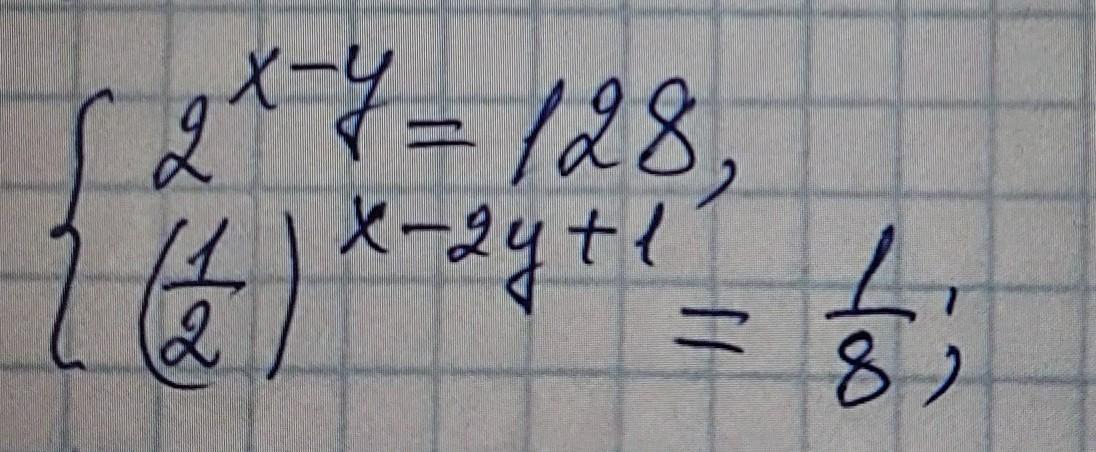 2^{x-y} = 128,
(1/2)^{x-2y+1} = 1/8;